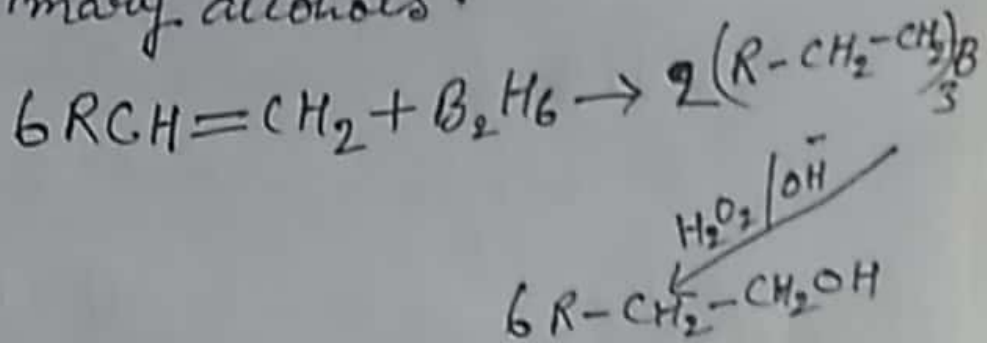 mary alcohols.
6 RCH=CH₂ + B₂H₆ → 2(R-CH₂-CH₂)₃B
H₂O₂/OH⁻
6 R-CH₂-CH₂OH